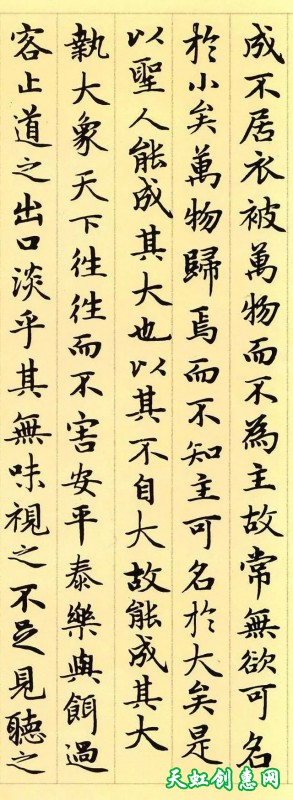 成不居衣被萬物而不為主故常無欲可名
於小矣萬物歸焉而不知主可名於大矣是
以聖人能成其大也以其不自大故能成其大
執大象天下往往而不害安平泰樂與餌過
容止道之出口淡乎其無味視之不足見聽之
天虹创惠网